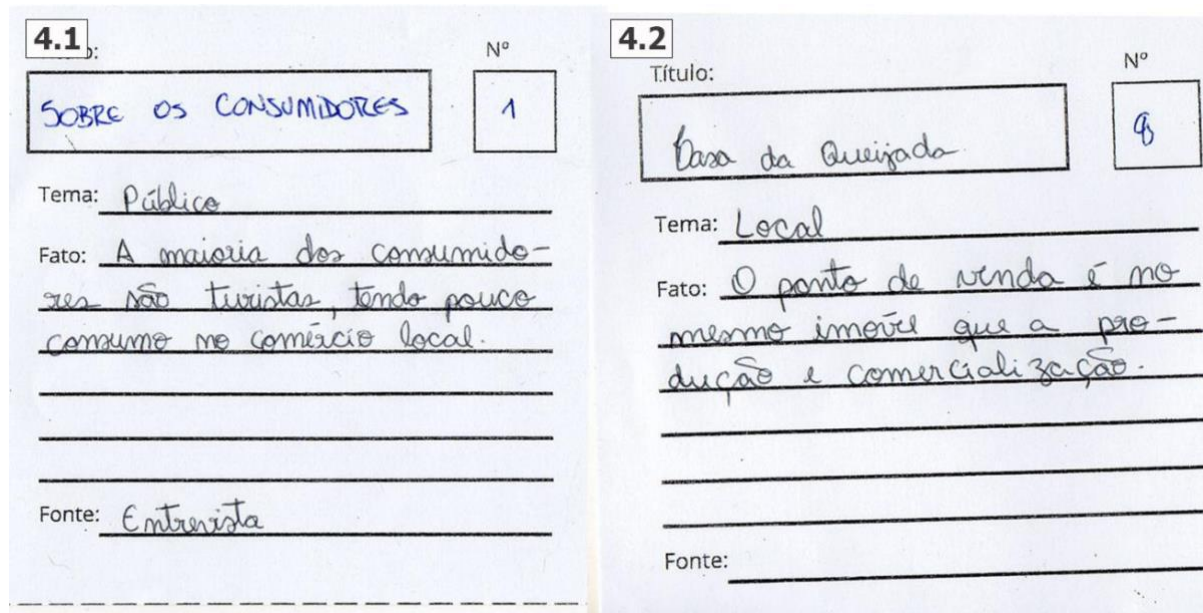 4.1
Nº
SOBRE OS CONSUMIDORES
1
Tema: Público
Fato: A maioria dos consumido-
res são turistas, tendo pouco
consumo no comércio local.
Fonte: Entrevista
4.2
Título:
Nº
Casa da Queijada
Tema: Local
Fato: O ponto de venda é no
mesmo imovél que a pro-
dução e comercialização.
Fonte: